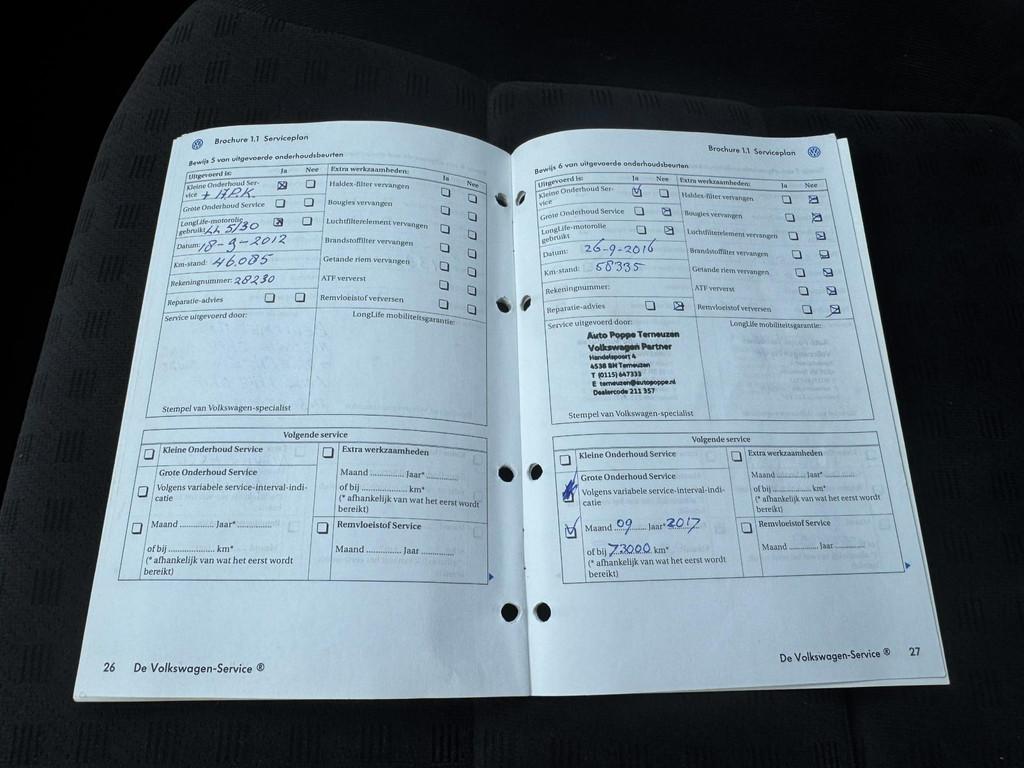 Brochure 1.1 Serviceplan
Bewijs 5 van uitgevoerde onderhoudsbeurten
Uitgevoerd is: Ja Nee Extra werkzaamheden: Ja Nee
Kleine Onderhoud Ser-
vice + A.P.K. Haldex-filter vervangen
Grote Onderhoud Service Bougies vervangen
LongLife-motorolie
gebruikt LL 5/30 Luchtfilterelement vervangen
Datum: 18-9-2012 Brandstoffilter vervangen
Km-stand: 46.085 Getande riem vervangen
Rekeningnummer: 28230 ATF ververst
Reparatie-advies Remvloeistof verversen
Service uitgevoerd door: LongLife mobiliteitsgarantie:
Stempel van Volkswagen-specialist
Volgende service
Kleine Onderhoud Service Extra werkzaamheden
Grote Onderhoud Service Maand ............ Jaar* ................
Volgens variabele service-interval-indi-
catie of bij ................ km*
(* afhankelijk van wat het eerst wordt
bereikt)
Maand ............ Jaar* ................ Remvloeistof Service
of bij ................ km* Maand ............ Jaar ............
(* afhankelijk van wat het eerst wordt
bereikt)
26 De Volkswagen-Service ®
Brochure 1.1 Serviceplan
Bewijs 6 van uitgevoerde onderhoudsbeurten
Uitgevoerd is: Ja Nee Extra werkzaamheden: Ja Nee
Kleine Onderhoud Ser-
vice Haldex-filter vervangen
Grote Onderhoud Service Bougies vervangen
LongLife-motorolie
gebruikt Luchtfilterelement vervangen
Datum: 26-9-2016 Brandstoffilter vervangen
Km-stand: 58335 Getande riem vervangen
Rekeningnummer: ATF ververst
Reparatie-advies Remvloeistof verversen
Service uitgevoerd door: LongLife mobiliteitsgarantie:
Auto Poppe Terneuzen
Volkswagen Partner
Handelspoort 4
4538 BN Terneuzen
T (0115) 647333
E terneuzen@autopoppe.nl
Dealercode 211 357
Stempel van Volkswagen-specialist
Volgende service
Kleine Onderhoud Service Extra werkzaamheden
Grote Onderhoud Service Maand ............ Jaar* ................
Volgens variabele service-interval-indi-
catie of bij ................ km*
(* afhankelijk van wat het eerst wordt
bereikt)
Maand 09 Jaar* 2017 Remvloeistof Service
of bij 73000 km* Maand ............ Jaar ............
(* afhankelijk van wat het eerst wordt
bereikt)
De Volkswagen-Service ® 27